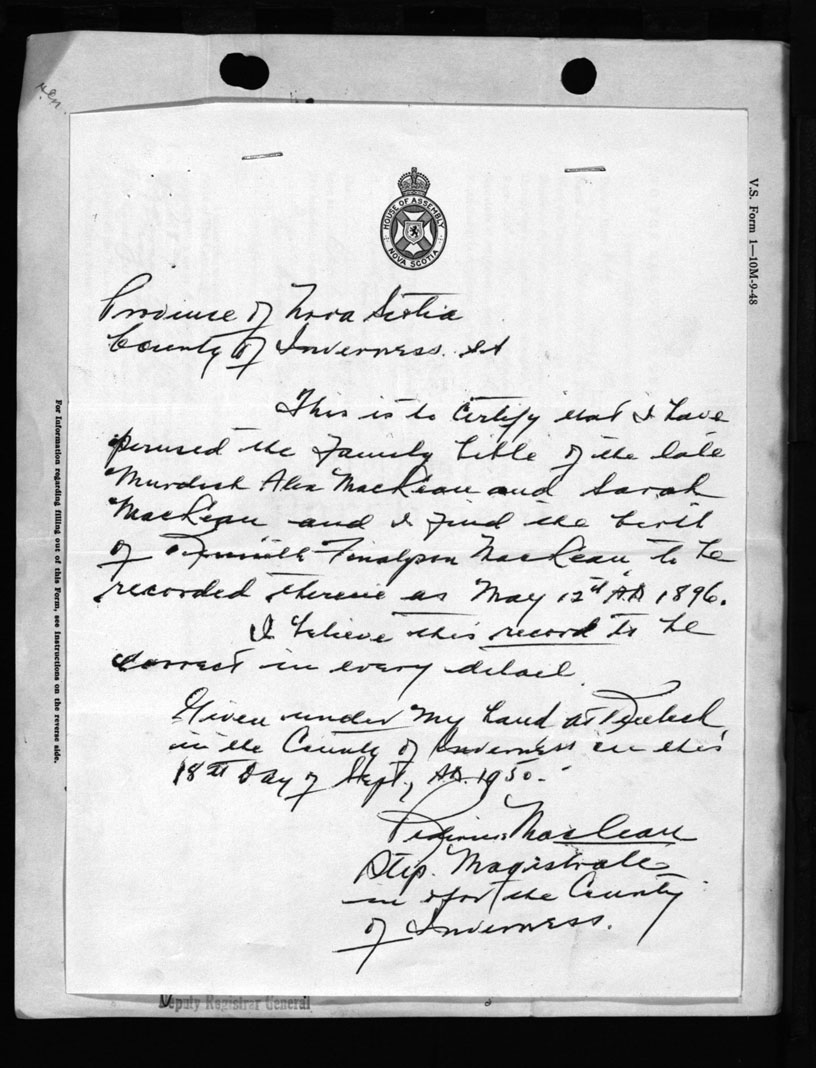 HOUSE OF ASSEMBLY
NOVA SCOTIA
V.S. Form 1—10M-9-48
Province of Nova Scotia
County of Inverness. SS
This is to Certify that I have
perused the Family bible of the late
Murdoch Alex MacLean and Sarah
MacLean and I find the birth
of Finalyson MacLean to be
recorded therein as May 12th A.D. 1896.
I believe this record to be
correct in every detail.
Given under my hand at
in the County of Inverness on this
18th Day of Sept, A.D. 1950.
MacLean
Stip. Magistrate
in & for the County
of Inverness.
For Information regarding filling out of this Form, see Instructions on the reverse side.
Deputy Registrar General